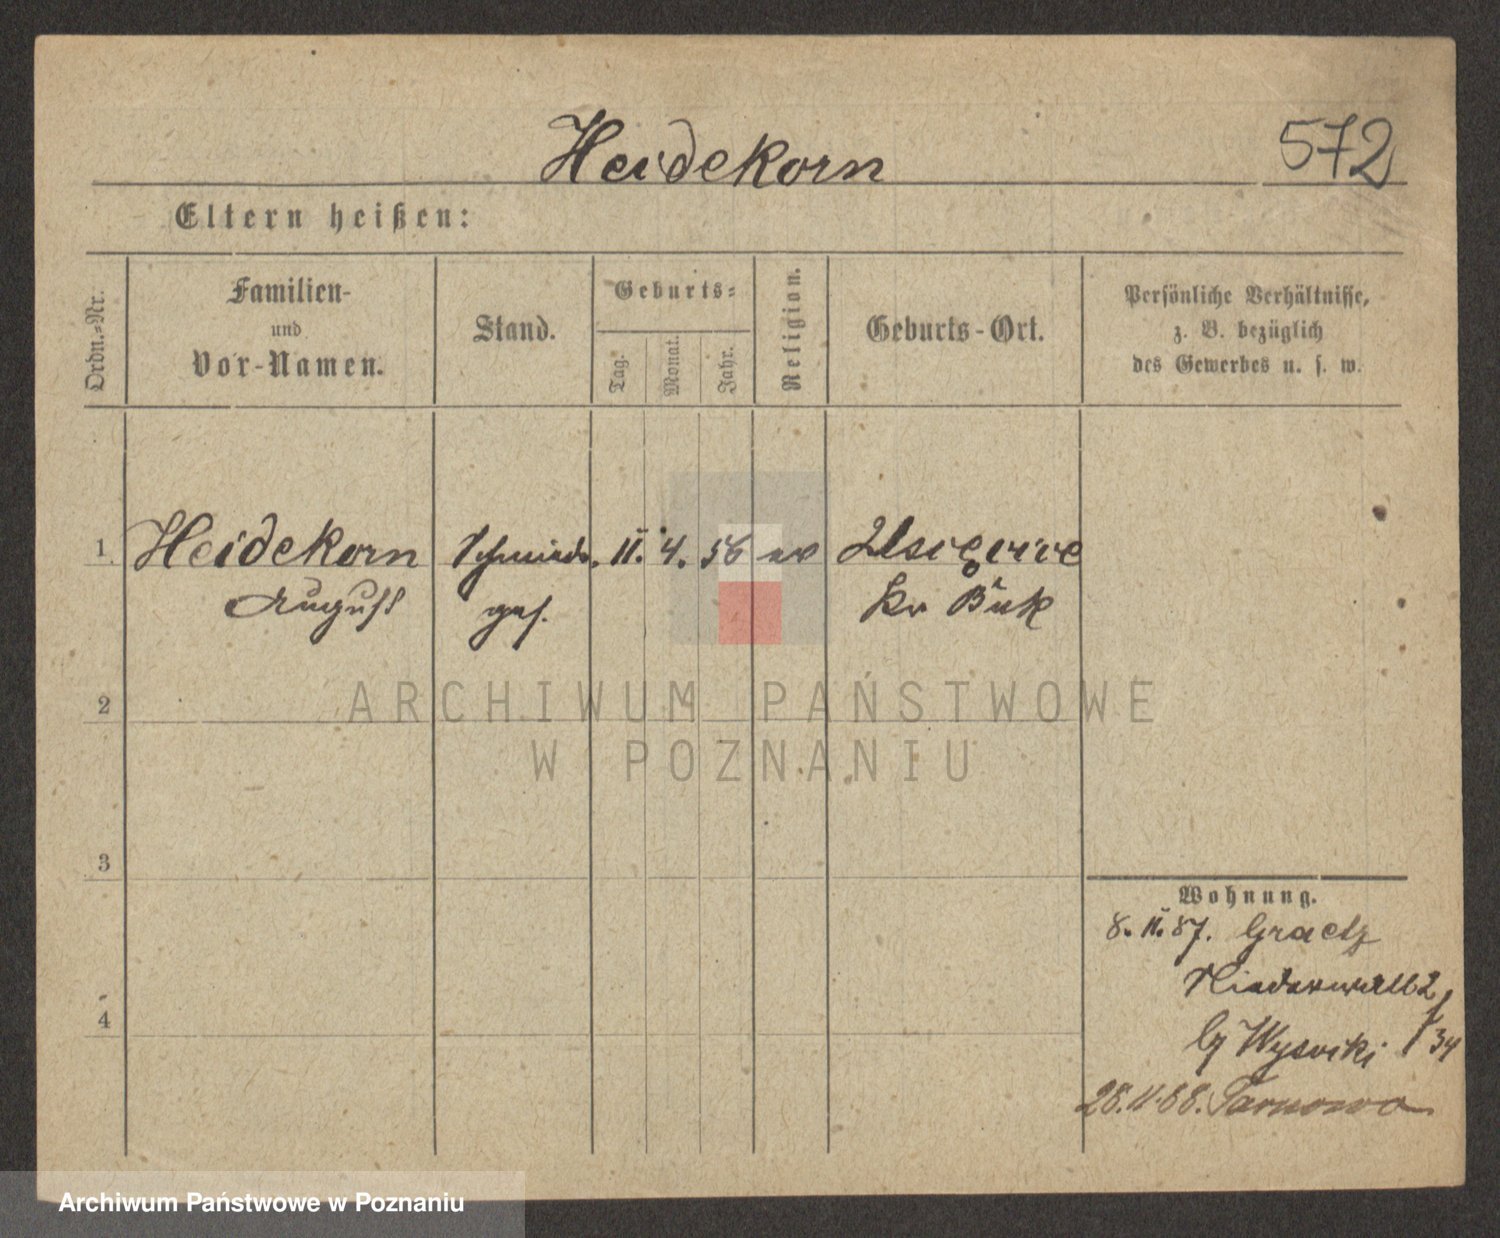 Heidekorn
572
Eltern heißen:
Ordn.-Nr.
Familien-
und
Vor-Namen.
Stand.
Geburts-
Tag.
Monat.
Jahr.
Religion.
Geburts-Ort.
Persönliche Verhältnisse,
z. B. bezüglich
des Gewerbes u. s. w.
1 Heidekorn Schmiede 11. 4. 56 ev
August ges. Kr Buk
2
ARCHIWUM PAŃSTWOWE
W POZNANIU
3
Wohnung.
8. 11. 87. Graetz
Niederwall 2/34
by Wysocki
4
28.11.88. Tarnowo
Archiwum Państwowe w Poznaniu